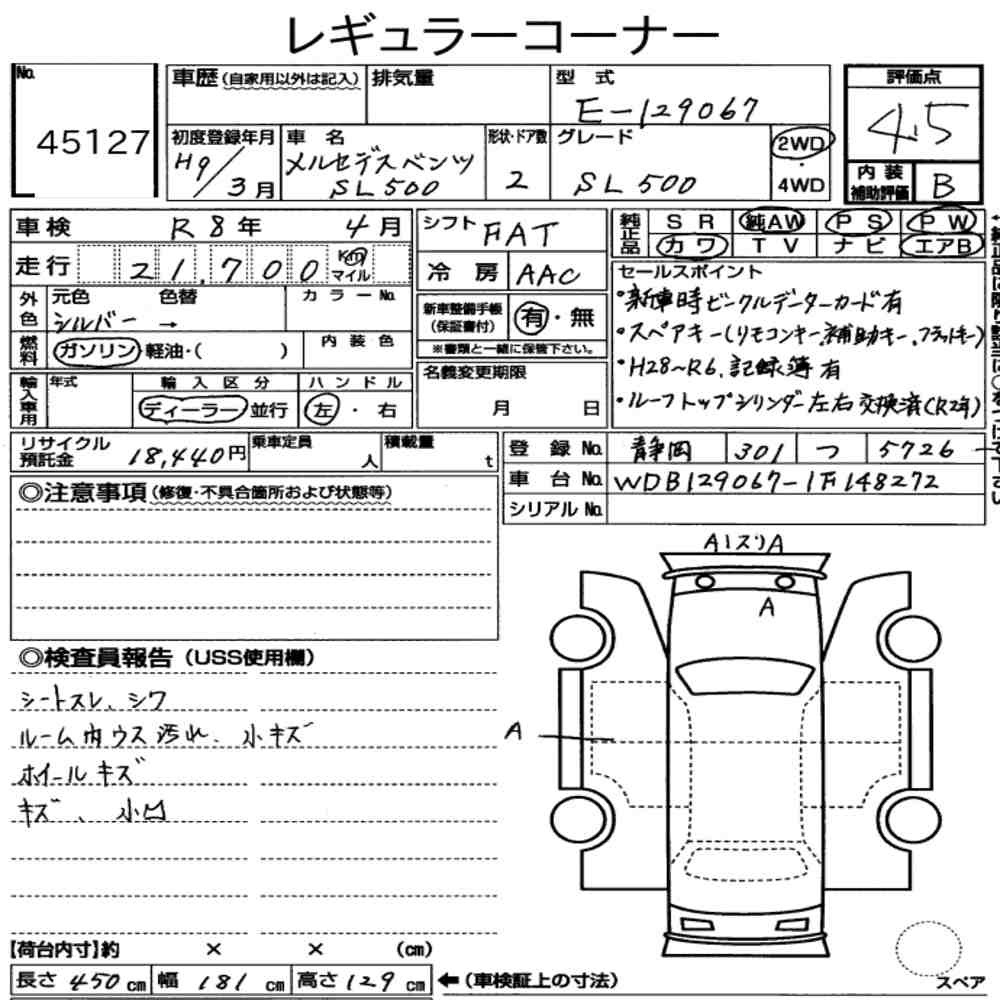 レギュラーコーナー
No. 45127
車歴 (自家用以外は記入)
排気量
型 式 E-129067
評価点 4.5
初度登録年月 H9/3月
車 名 メルセデスベンツ SL500
形状・ドア数 2
グレード SL500
2WD・4WD
内装補助評価 B
車検 R8年 4月
シフト FAT
純正品 SR 純AW PS PW
カワ TV ナビ エアB
走行 21,700 Km マイル
冷房 AAC
セールスポイント
・新車時ビークルデーターカード有
・スペアキー(リモコンキー、補助キー、フラットキー)
・H28~R6、記録簿有
・ルーフトップシリンダー左右交換済(R2年)
外色 元色 シルバー → 色替
カラーNo.
新車整備手帳(保証書付) 有・無
※書類と一緒に保管下さい。
燃料 ガソリン 軽油・( )
内装色
名義変更期限 月 日
輸入車用 年式
輸入区分 ディーラー 並行
ハンドル 左・右
リサイクル預託金 18,440円
乗車定員 人
積載量 t
登録No. 静岡 301 つ 5726
車台No. WDB129067-1F148272
シリアルNo.
◎注意事項 (修復・不具合箇所および状態等)
A1スリA
A
◎検査員報告 (USS使用欄)
シートスレ、シワ
ルーム内ウス汚れ、小キズ
A
ホイールキズ
キズ、小凹
【荷台内寸】約 × × (cm)
長さ 450cm 幅 181cm 高さ 129cm ←(車検証上の寸法)
スペア